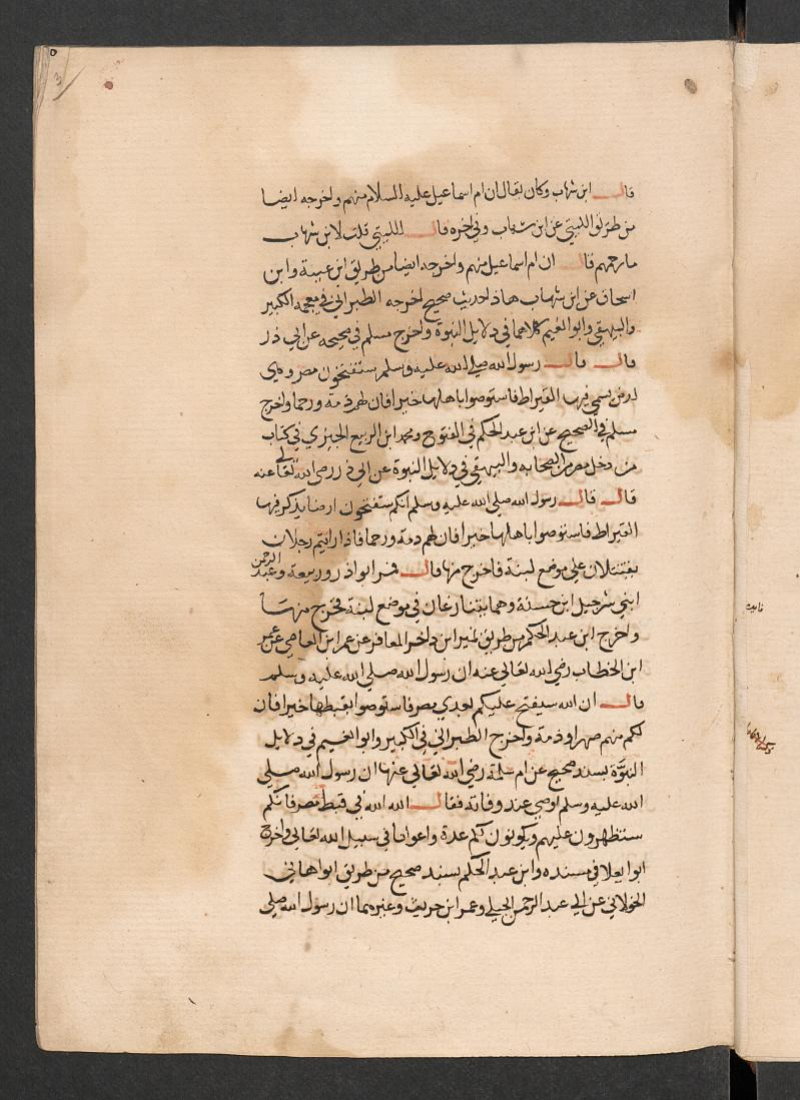 قال ابن شهاب وكان يقال ان ام اسماعيل عليه السلام منهم واخرجه ايضا
من طريق الليثي عن ابن شهاب وفي اخره قال الليثي قلت لابن شهاب
ما رحمهم قال ان ام اسماعيل منهم واخرجه ايضا من طريق ابن عيينة وابن
اسحاق عن ابن شهاب هاذا حديث صحيح اخرجه الطبراني في معجمه الكبير
والبيهقي وابو النعيم كلاهما في دلايل النبوة واخرج مسلم في صحيحه عن ابي ذر
قال قال رسول الله صلى الله عليه وسلم ستفتحون مصر وهي
ارض يسمى فيها القيراط فاستوصوا باهلها خيرا فان لهم ذمة ورحما واخرج
مسلم في الصحيح عن ابن عبد الحكم في الفتوح ومحمد ابن الربيع الجيزي في كتاب
من دخل مصر من الصحابه والبيهقي في دلايل النبوة عن ابي ذر رضي الله تعالى عنه
قال قال رسول الله صلى الله عليه وسلم انكم ستفتحون ارضا يذكر فيها
القيراط فاستوصوا باهلها خيرا فان لهم ذمة ورحما فاذا رايتم رجلان
يقتتلان على موضع لبنة فاخرج منها قال فمر ابوا ذر وربيعة وعبد الرحمن
ابني شرحبيل ابن حسنة وهما يتنازعان في موضع لبنة فخرج منها
واخرج ابن عبد الحكم من طريق بحير ابن داخر المعافر عن عمر ابن العاصي عن عمر
ابن الخطاب رضي الله تعالى عنه ان رسول الله صلى الله عليه وسلم
قال ان الله سيفتح عليكم بعدي مصر فاستوصوا بقبطها خيرا فان
لكم منهم صهرا وذمة واخرج الطبراني في الكبير وابوا النعيم في دلايل
النبوة بسند صحيح عن ام سلمة رضي الله تعالى عنها ان رسول الله صلى
الله عليه وسلم اوصى عند وفاته فقال الله الله في قبط مصر فانكم
ستظهرون عليهم ويكونون لكم عدة واعوانا في سبيل الله تعالى واخرج
ابوا يعلا في مسنده وابن عبد الحكم بسند صحيح من طريق ابوا هاني
الخولاني عن ابي عبد الرحمن الحبلي وعمر ابن حريث وغيرهما ان رسول الله صلى